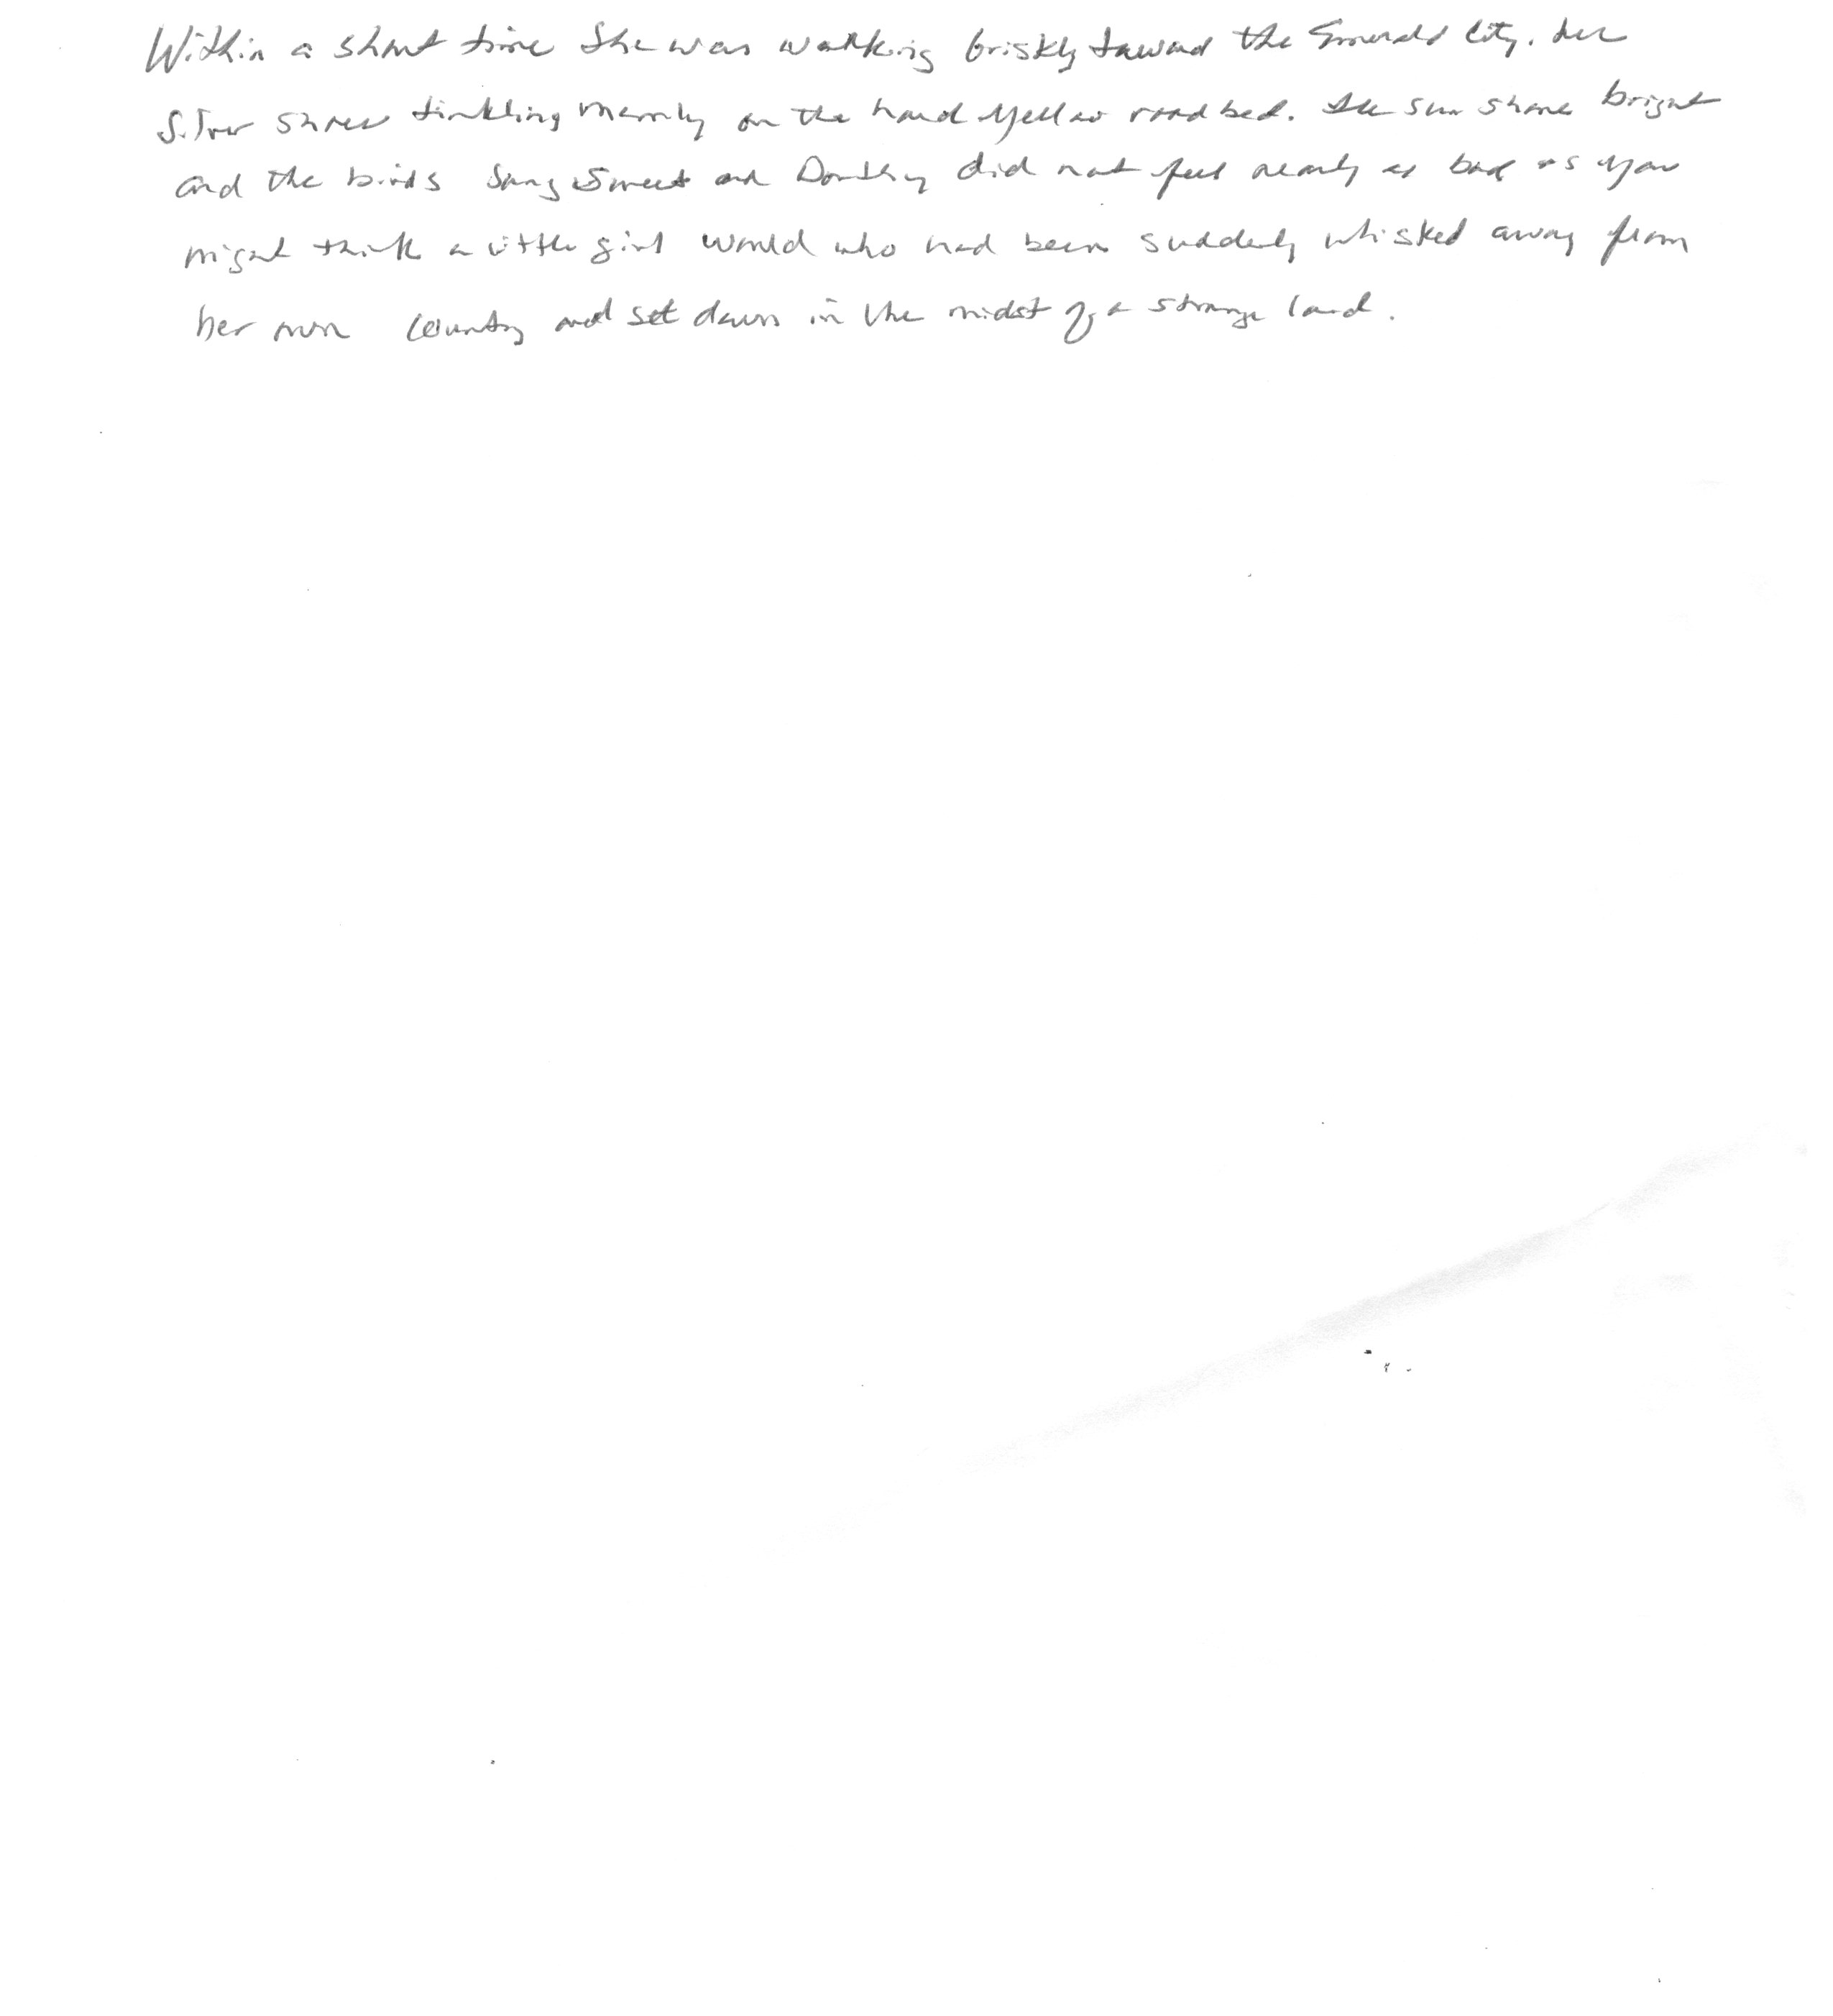 Within a short time she was walking briskly toward the Emerald City. her
silver shoes tinkling merrily on the hard yellow road bed. The sun shone bright
and the birds sang sweet and Dorothy did not feel nearly as bad as you
might think a little girl would who had been suddenly whisked away from
her own country and set down in the midst of a strange land.